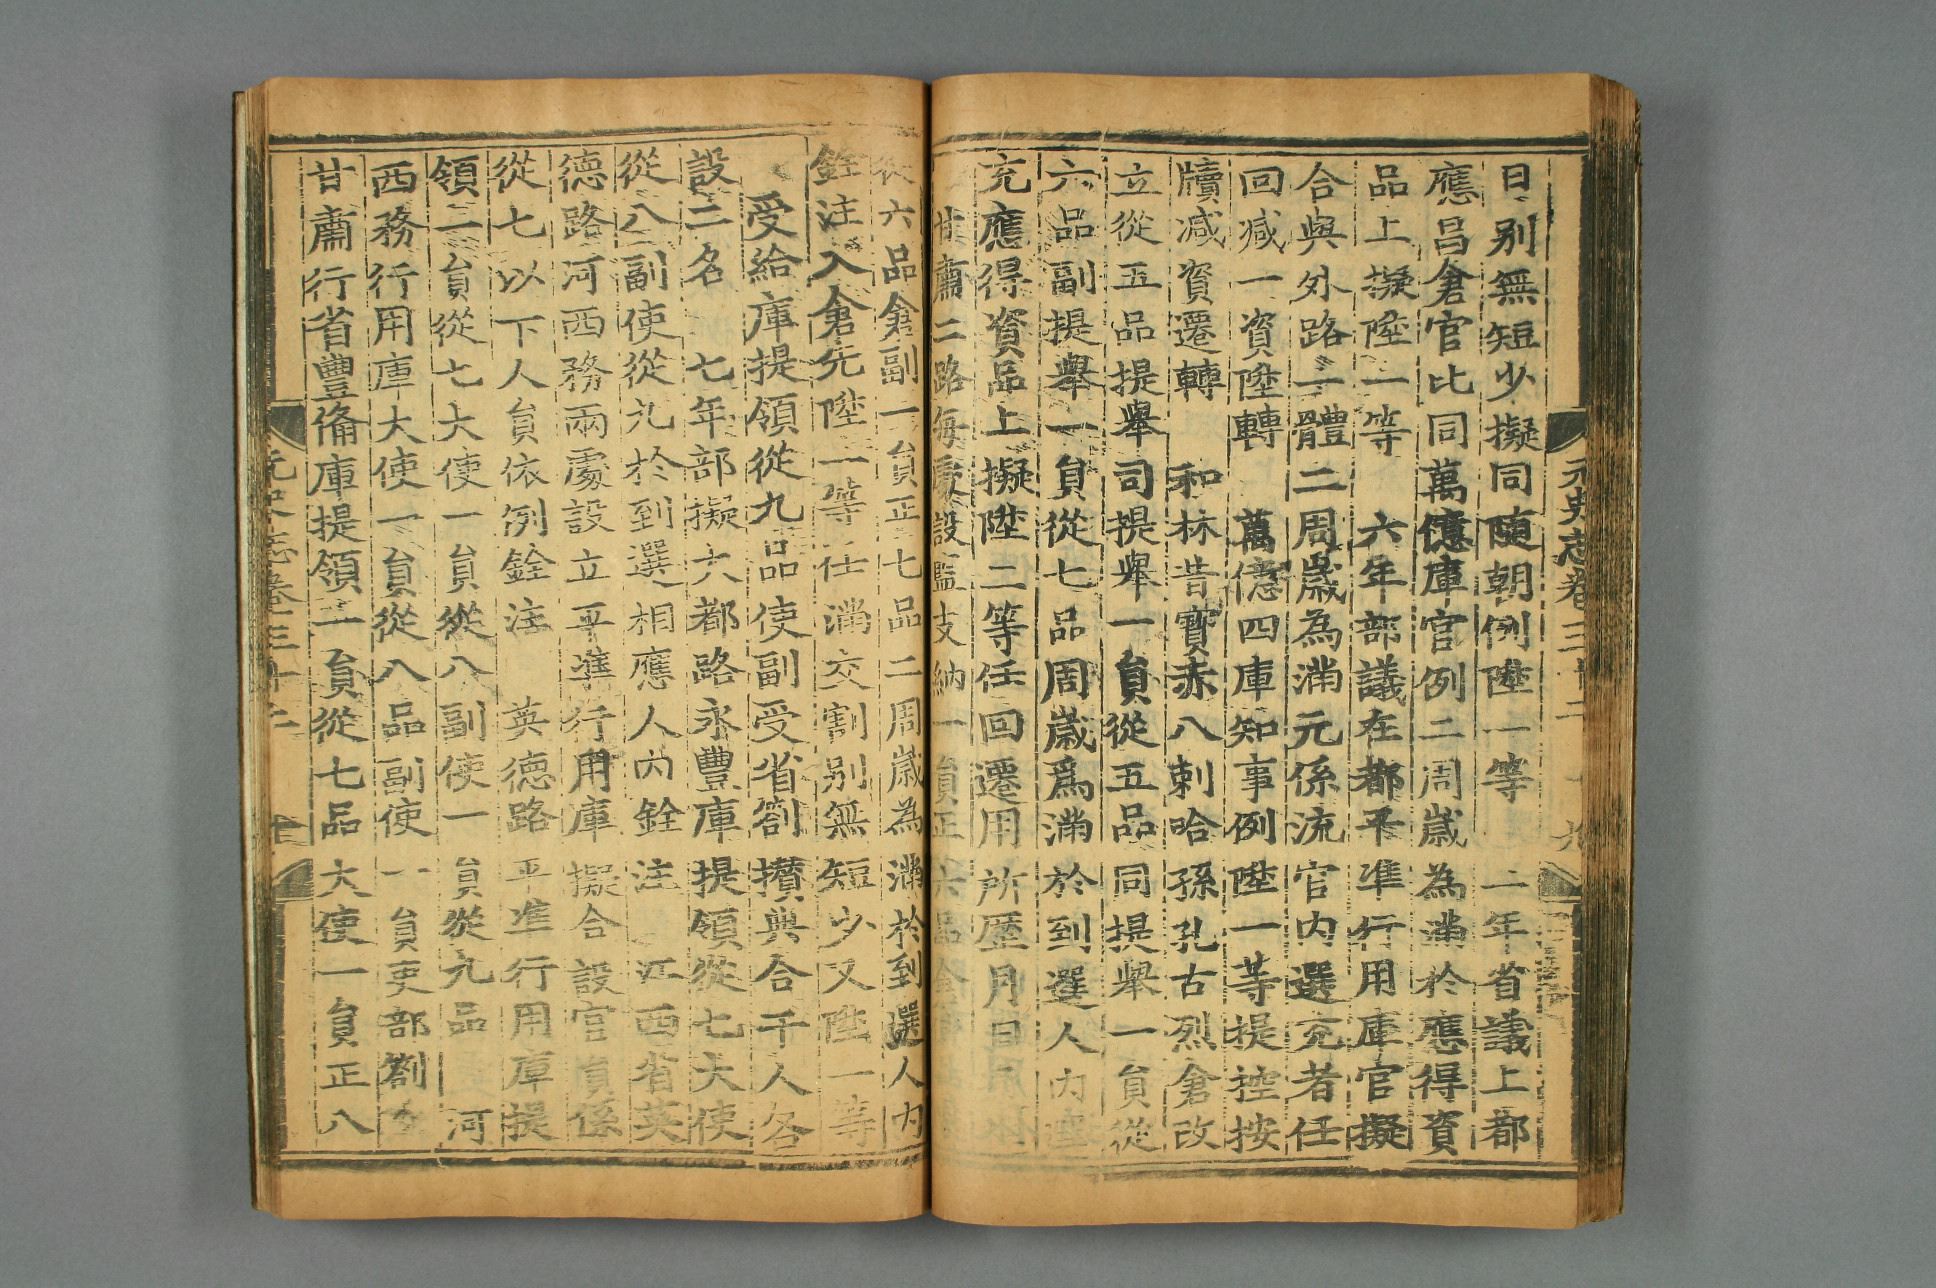 日別無短少擬同隨朝例陞一等 二年省議上都
應昌倉官比同萬億庫官例二周歲為滿於應得資
品上擬陞一等 六年部議在都平準行用庫官擬
合與外路一體二周歲為滿元係流官内選充者任
回减一資陞轉 萬億四庫知事例陞一等提控按
牘减資遷轉 和林昔寶赤八剌哈孫孔古烈倉改
立從五品提舉司提舉一員從五品同提舉一員從
六品副提舉一員從七品周歲爲滿於到選人内銓
充應得資品上擬陞二等任回遷用所歷月日
甘肅二路每處設監支納一員正六品倉
從六品倉副一員正七品二周歲為滿於到選人内
銓注入倉先陞一等任滿交割别無短少又陞一等
受給庫提領從九品使副受省劄攢典合干人各
設二名 七年部擬大都路永豐庫提領從七大使
從八副使從九於到選相應人内銓注 江西省英
德路河西務兩處設立平準行用庫擬合設官員係
從七以下人員依例銓注 英德路平準行用庫提
領一員從七大使一員從八副使一員從九品 河
西務行用庫大使一員從八品副使一員吏部劄
甘肅行省豐備庫提領一員從七品大使一員正八
元史志卷三十二 九
元史志卷三十二 十